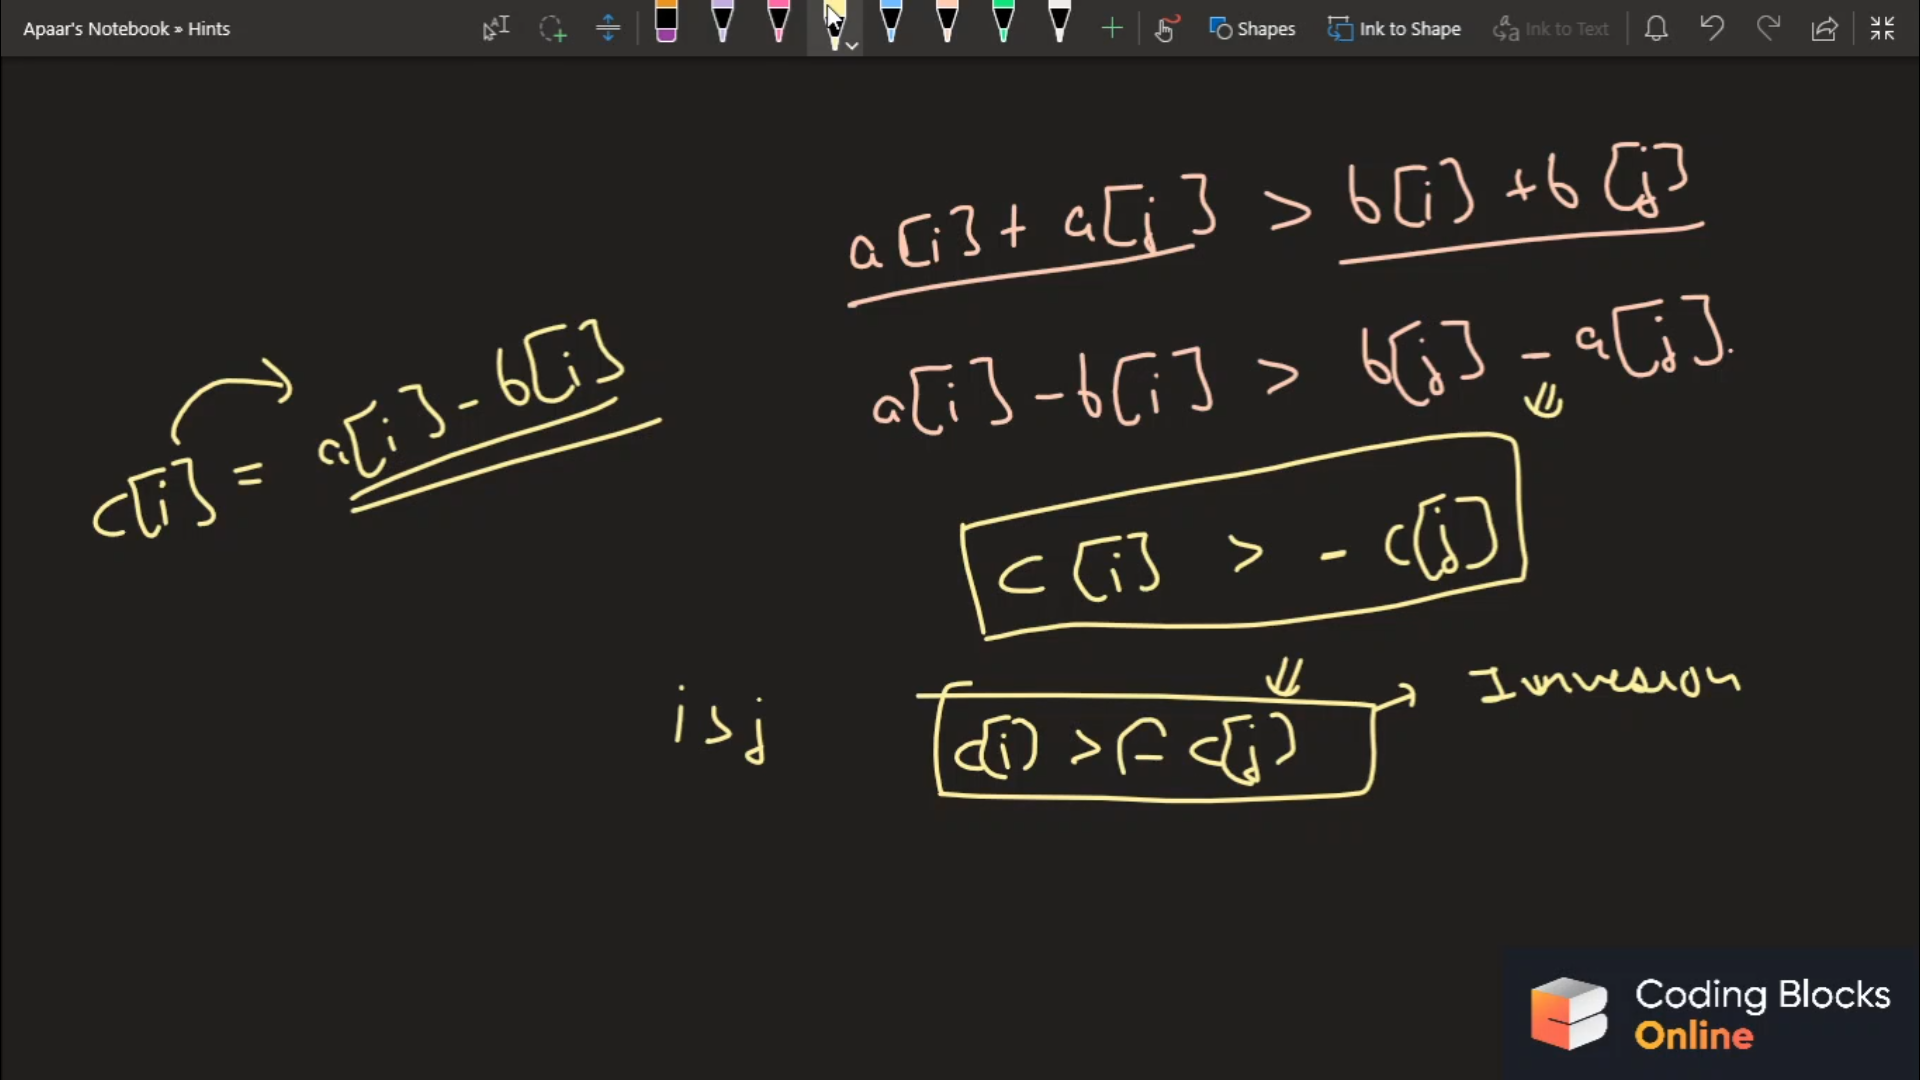 Apaar's Notebook » Hints
Shapes
Ink to Shape
Ink to Text
a[i] + a[j] > b[i] + b[j]
a[i] - b[i] > b[j] - a[j].
c[i] = a[i] - b[i]
c[i] > - c[j]
i > j
c[i] > - c[j]
Coding Blocks
Online